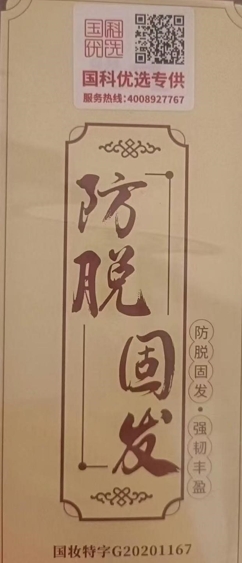 国科
优选
国科优选专供
服务热线:4008927767
防脱
固发
防脱固发·强韧丰盈
国妆特字G20201167